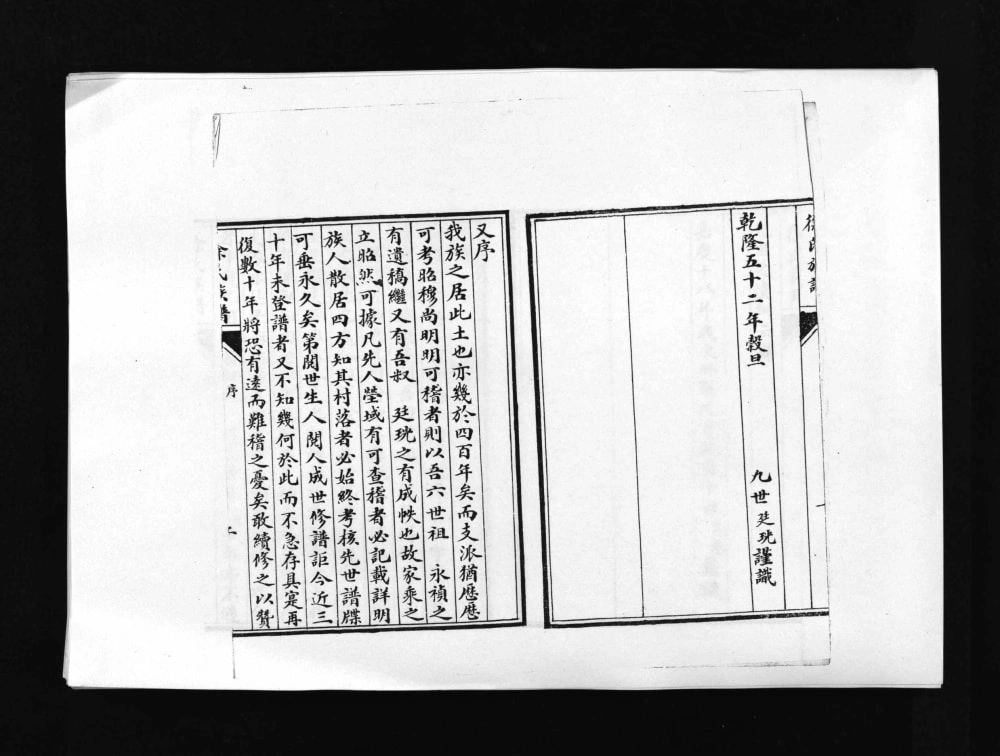 族譜
乾隆五十二年穀旦
九世廷珖謹識
又序
我族之居此土也亦幾於四百年矣而支派猶歷歷
可考昭穆尚明明可稽者則以吾六世祖 永禎之
有遺稿繼又有吾叔 廷珖之有成帙也故家乘之
立昭然可據凡先人塋域有可查稽者必記載詳明
族人散居四方知其村落者必始終考核先世譜牒
可垂永久矣第閱世生人閱人成世修譜詎今近三
十年未登譜者又不知幾何於此而不急存具寔再
復數十年將恐有遠而難稽之憂矣敢續修之以贊
氏族譜
序